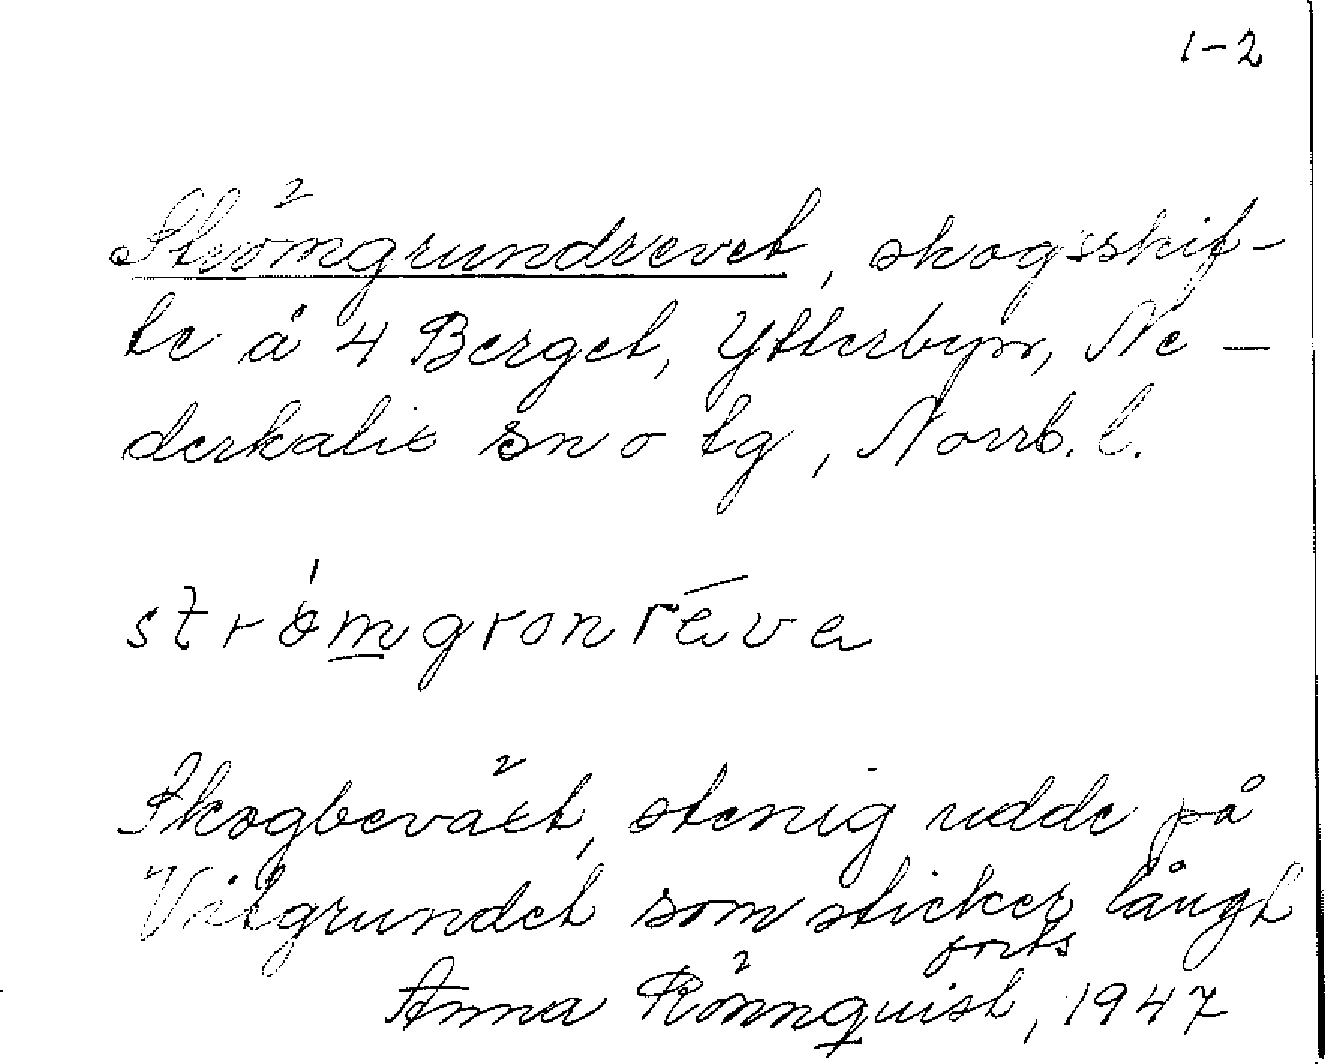 1-2
Strömgrundrevet, skogsskif-
te å 4 Berget, Ytterbyn, Ne-
derkalix sn o tg, Norrb. l.
strömgronréva
Skogbeväxt, stenig udde på
Vitgrundet som sticker långt
forts
Anna Rönnquist, 1947